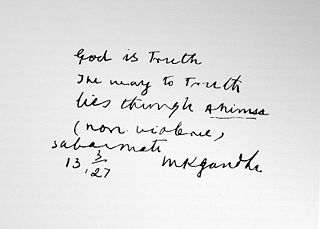 God is Truth
The way to Truth
lies through ahimsa
(non violence)
Sabarmati
13 3/27 MKGandhi